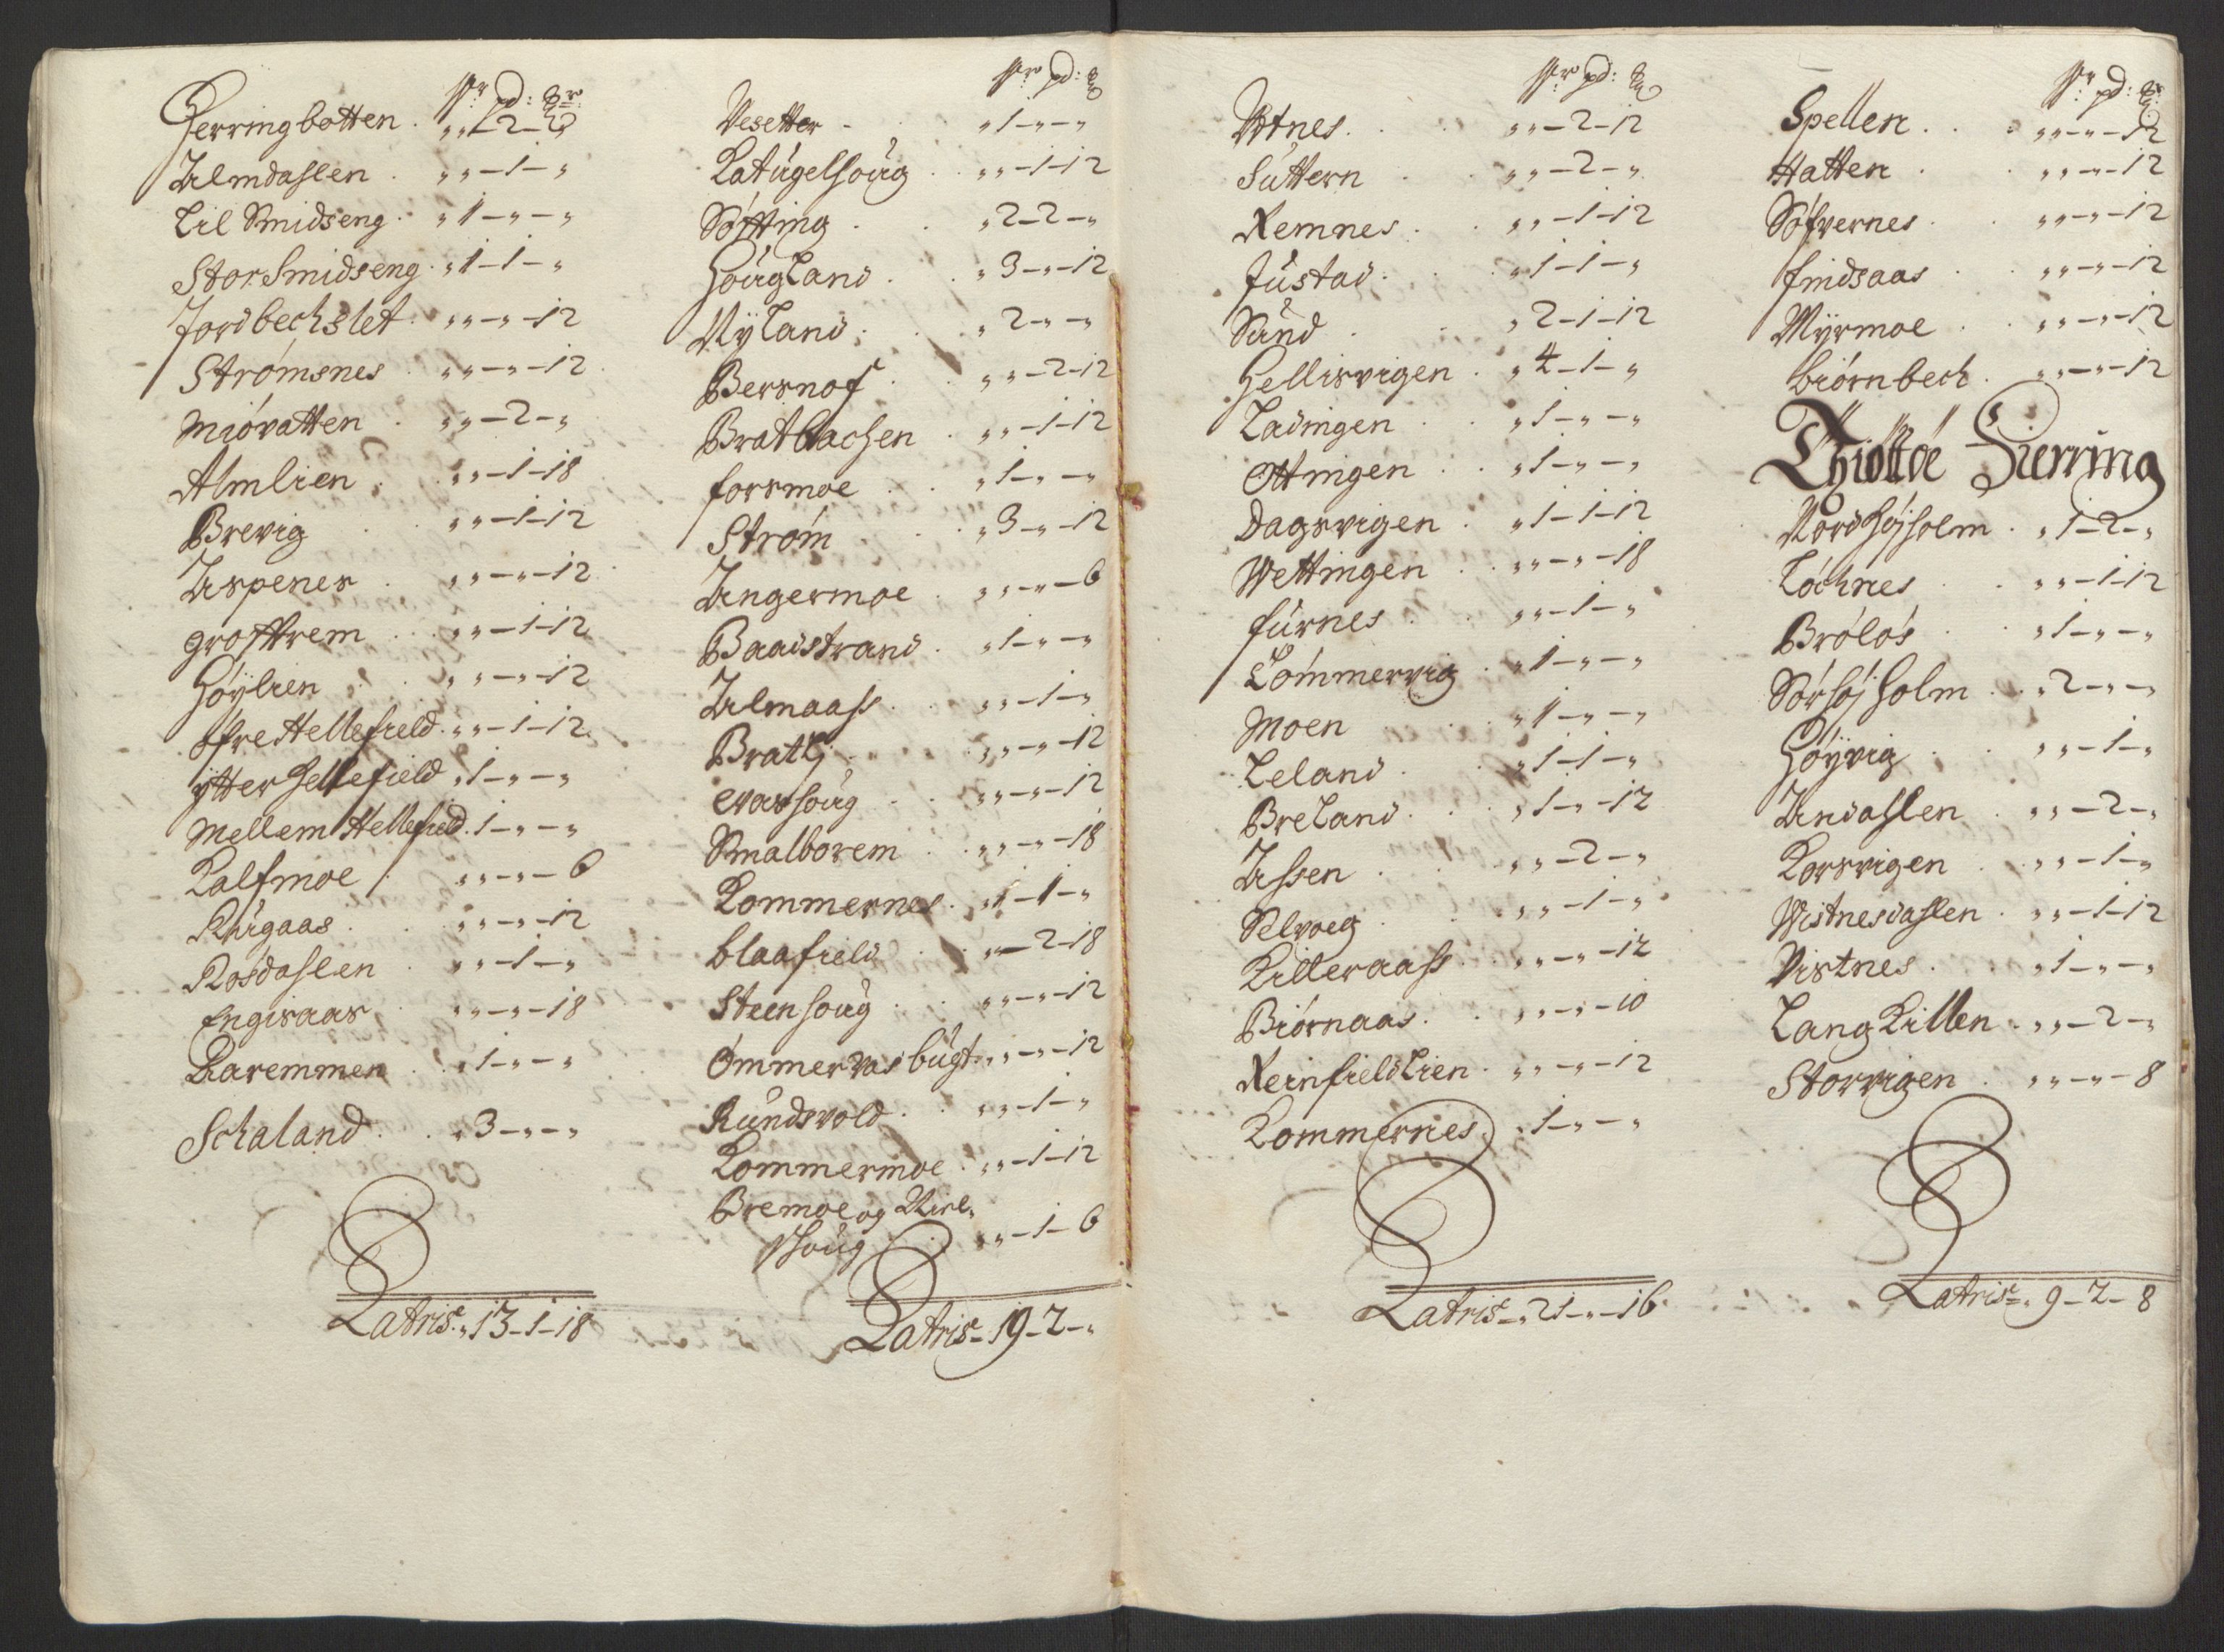 pd:
Herringbotten . „„-2-„
Almdahlen . „„-1-„
Lil Smidseng . „1-„-„
Stor Smidseng . „1-1-„
Jordbechslet . „„-„-12
Strömsnes . „„-„-12
Miövatten . „„-2-„
Almlien . „„-1-18
Brevig „„-1-12
Aspenes . „„-„-12
groffrem . „„-1-12
Höÿlien . „„-„-12
Öfre Hellefield . „„-1-12
ÿtter Hellefield „1-„-„
Mellem Hellefield . 1-„-„
Kalfmoe . „„-„-6
Rhügaas . „„-„-12
Rosdahlen . „„-1-„
Engisaas . „„-„-18
Karemmen . „1-„-„
Schaland . „3-„-„
Latris „13-1-18
pd:
Vesetter . „1-„-„
Katügelhoüg . „„-1-12
Söfting . „2-2-„
Hoügland . „3-„-12
Nÿland . „2-„-„
Bersnof . „„-2-12
Bratbachen . „„-1-12
forsmoe . „1-„-„
Ström . „3-„-12
Angermoe . „„-„-6
Baadstrand . „1-„-„
Almaass . „„-1-„
Bratli . „„-„-12
Evashoüg . „„-„-12
Smalborem . „„-„-18
Kommernes . „1-1-„
blaafield . „„-2-18
Steenhoüg . „„-„-12
Ommervas bügt „„-„-12
Ründsvold . „„-1-„
Kommermoe . „„-1-12
Bremoe og
hoüg „„-1-6
Latris - 19-2-„
pd:
Votnes . „„-2-12
Süttern . „„-2-„
Remnes . „„-1-12
Jüstad . „1-1-„
Sünd . „2-1-12
Hellisvigen . „4-1-„
Ladingen . „1-„-„
Ottingen . „1-„-„
Dagsvigen . „1-1-12
Wettingen . „„-„-18
fürnes . „„-1-„
Tömmervig . „1-„-„
Moen . „1-„-„
Leland . „1-1-„
Breland . „1-„-12
Assen . „„-2-„
Selvoeg . „„-1-„
Killeraass . „„-„-12
Biörnaas . „„-„-10
Reinfieldlien . „„-„-12
Kommernes . 1-„-„
Latris - „21-„-16
pd:
Spellen . „„-„-12
Hatten . „„-„-12
Söfvernes . „„-„-12
findsaas . „„-„-12
Mÿrmoe . „„-„-12
biörnbech . „„-„-12
Thiöttöe Fierring
Nord Höjholm . „1-2-„
Löchnes . „„-1-12
Brölös . „1-„-„
Sör höj holm . „2-„-„
Höÿvig . „„-1-„
Andahlen . „„-2-„
Korsvigen . „„-1-„
Wistnesdahlen . „„-1-12
Vistnes . „1-„-„
Lang Killen . „„-2-„
Storvigen . „„-„-8
Latris - „ 9-2-8